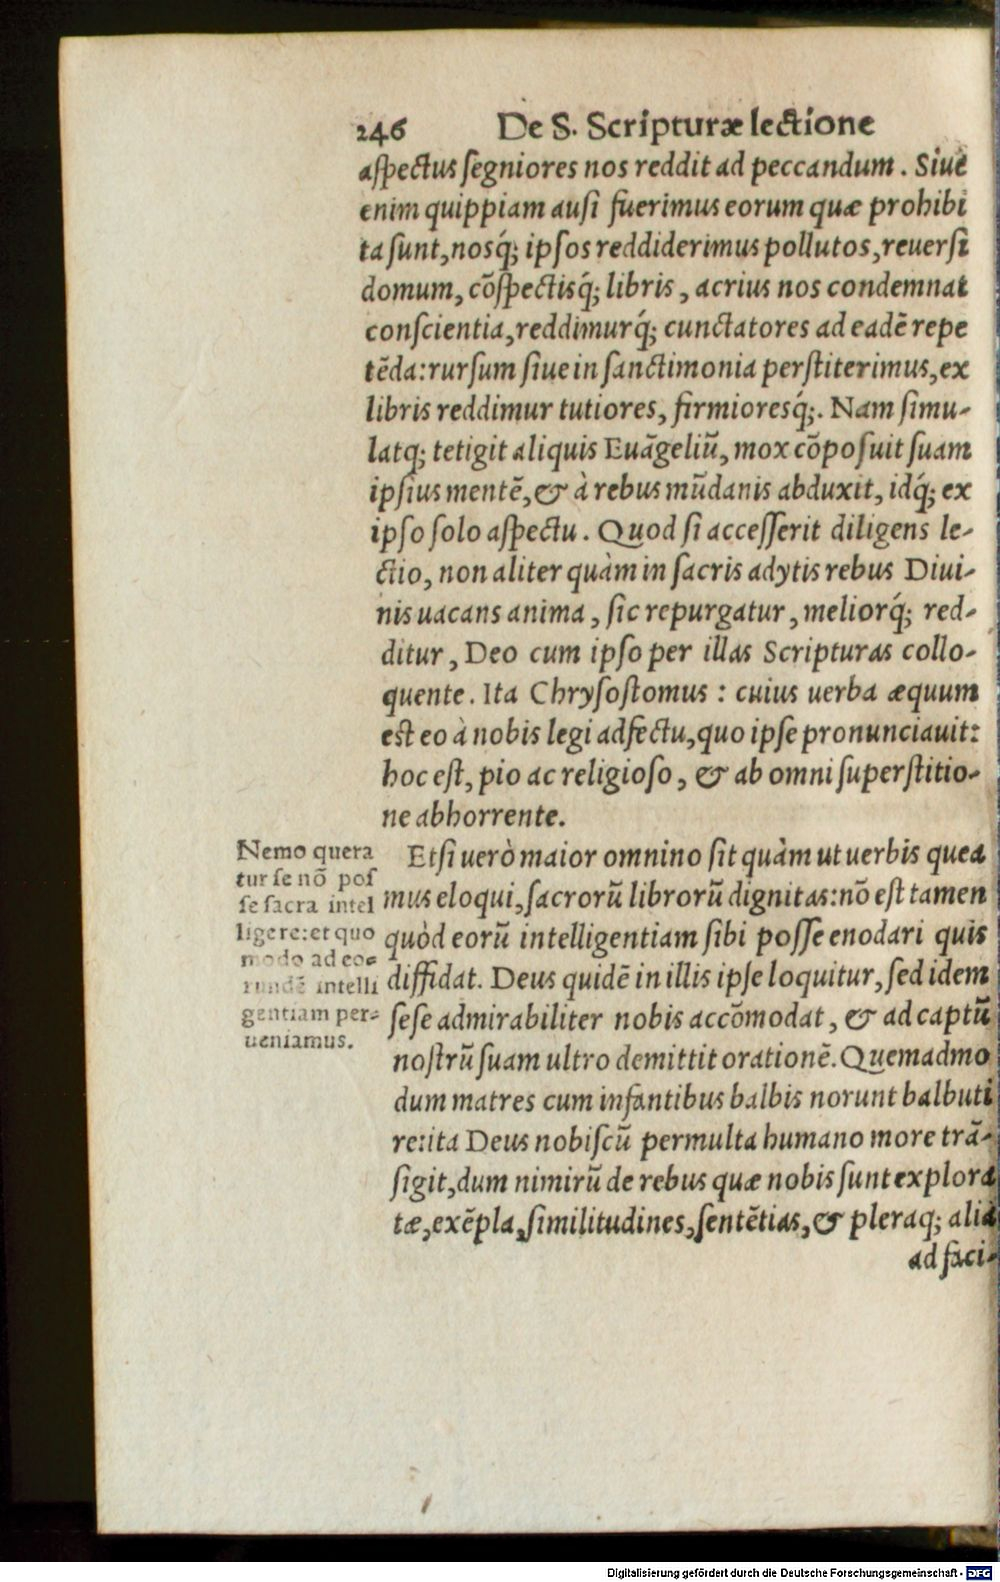 246 De S. Scripturæ lectione
aſpectus ſegniores nos reddit ad peccandum. Siue
enim quippiam auſi fuerimus eorum quæ prohibi
ta ſunt, nosq́; ipſos reddiderimus pollutos, reuerſi
domum, cõſpectisq́; libris, acrius nos condemnat
conſcientia, reddimurq́; cunctatores ad eadẽ repe
tẽda: rurſum ſiue in ſanctimonia perſtiterimus, ex
libris reddimur tutiores, firmioresq́;. Nam ſimu-
latq; tetigit aliquis Euãgeliũ, mox cõpoſuit ſuam
ipſius mentẽ, & à rebus mũdanis abduxit, idq́; ex
ipſo ſolo aſpectu. Quod ſi acceſſerit diligens le-
ctio, non aliter quàm in ſacris adytis rebus Diui-
nis uacans anima, ſic repurgatur, meliorq́; red-
ditur, Deo cum ipſo per illas Scripturas collo-
quente. Ita Chryſoſtomus: cuius uerba æquum
eſt eo à nobis legi adfectu, quo ipſe pronunciauit:
hoc eſt, pio ac religioſo, & ab omni ſuperſtitio-
ne abhorrente.
Nemo quera
tur ſe nõ poſ
ſe ſacra intel
ligere: et quo
modo ad eo-
rundẽ intelli
gentiam per-
ueniamus.
Etſi uerò maior omnino ſit quàm ut uerbis quea
mus eloqui, ſacrorũ librorũ dignitas: nõ eſt tamen
quòd eorũ intelligentiam ſibi poſſe enodari quis
diffidat. Deus quidẽ in illis ipſe loquitur, ſed idem
ſeſe admirabiliter nobis accõmodat, & ad captũ
noſtrũ ſuam ultro demittit orationẽ. Quemadmo
dum matres cum infantibus balbis norunt balbuti
re: ita Deus nobiſcũ permulta humano more trã-
ſigit, dum nimirũ de rebus quæ nobis ſunt explora
tæ, exẽpla, ſimilitudines, ſentẽtias, & pleraq; alia
ad faci-
Digitalisierung gefördert durch die Deutsche Forschungsgemeinschaft - DFG